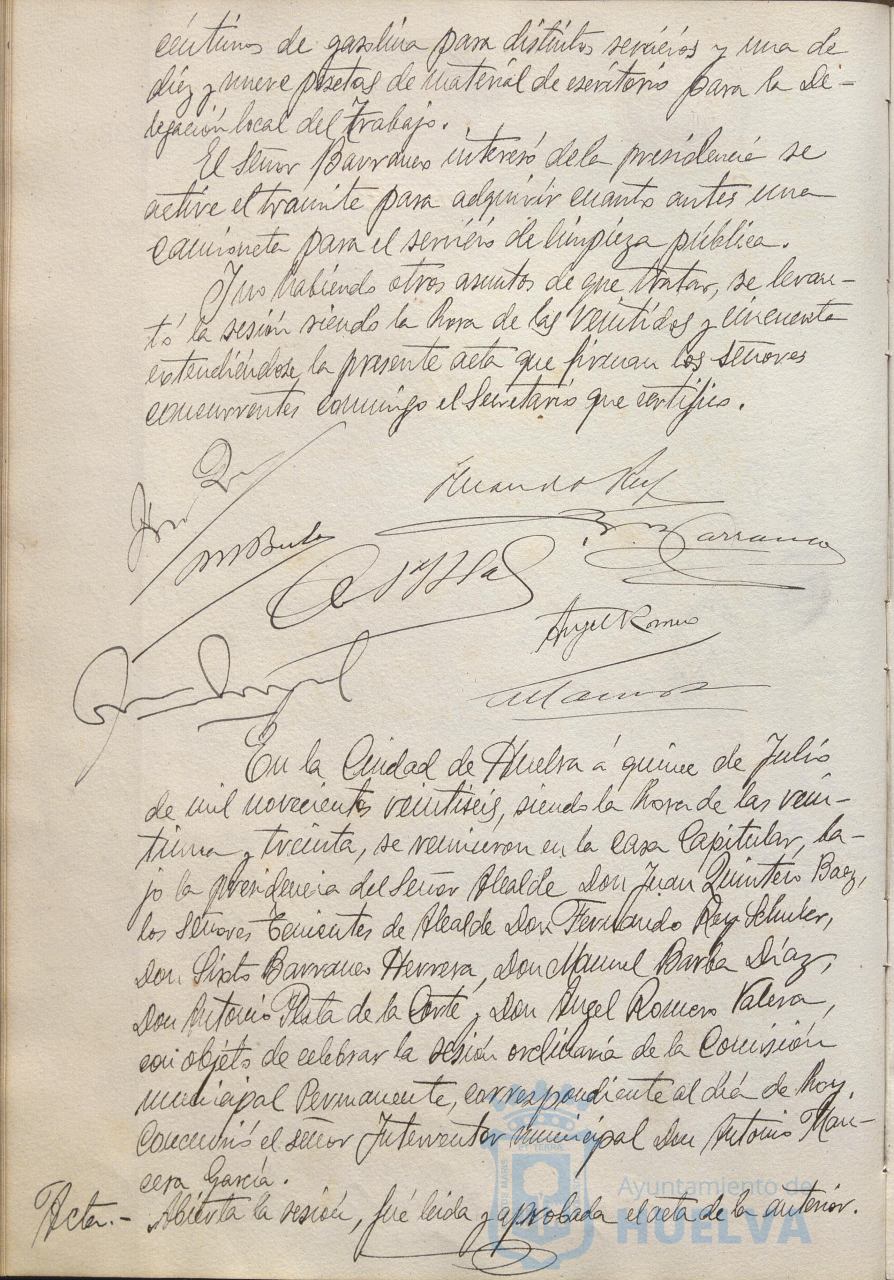 céntimos de gasolina para distintos servicios y una de
diez y nueve pesetas de material de escritorio para la De-
legación local del Trabajo.
El Señor Barranco interesó de la presidencia se
active el tramite para adquirir cuanto antes una
camioneta para el servicio de limpieza pública.
Y no habiendo otros asuntos de que tratar, se levan-
tó la sesión siendo la hora de las veintidos y cincuenta
extendiéndose la presente acta que firman los señores
concurrentes conmigo el Secretario que certifico.
Fernando Rey
M Barba
Barranco
Angel Romero
En la Ciudad de Huelva á quince de Julio
de mil novecientos veintiseis, siendo la hora de las vein-
tiuna y treinta, se reunieron en la casa Capitular, ba-
jo la presidencia del Señor Alcalde Don Juan Quintero Baez,
los Señores Tenientes de Alcalde Don Fernando Rey
Don Sixto Barranco Herrera, Don Manuel Barba Díaz,
Don Antonio Plata de la Corte y Don Ángel Romero Valera,
con objeto de celebrar la sesión ordinaria de la Comisión
municipal Permanente, correspondiente al día de hoy.
Concurrió el señor Interventor municipal Don Antonio Man-
cera García.
Acta.- Abierta la sesión, fué leida y aprobada el acta de la anterior.
Ayuntamiento de
HUELVA